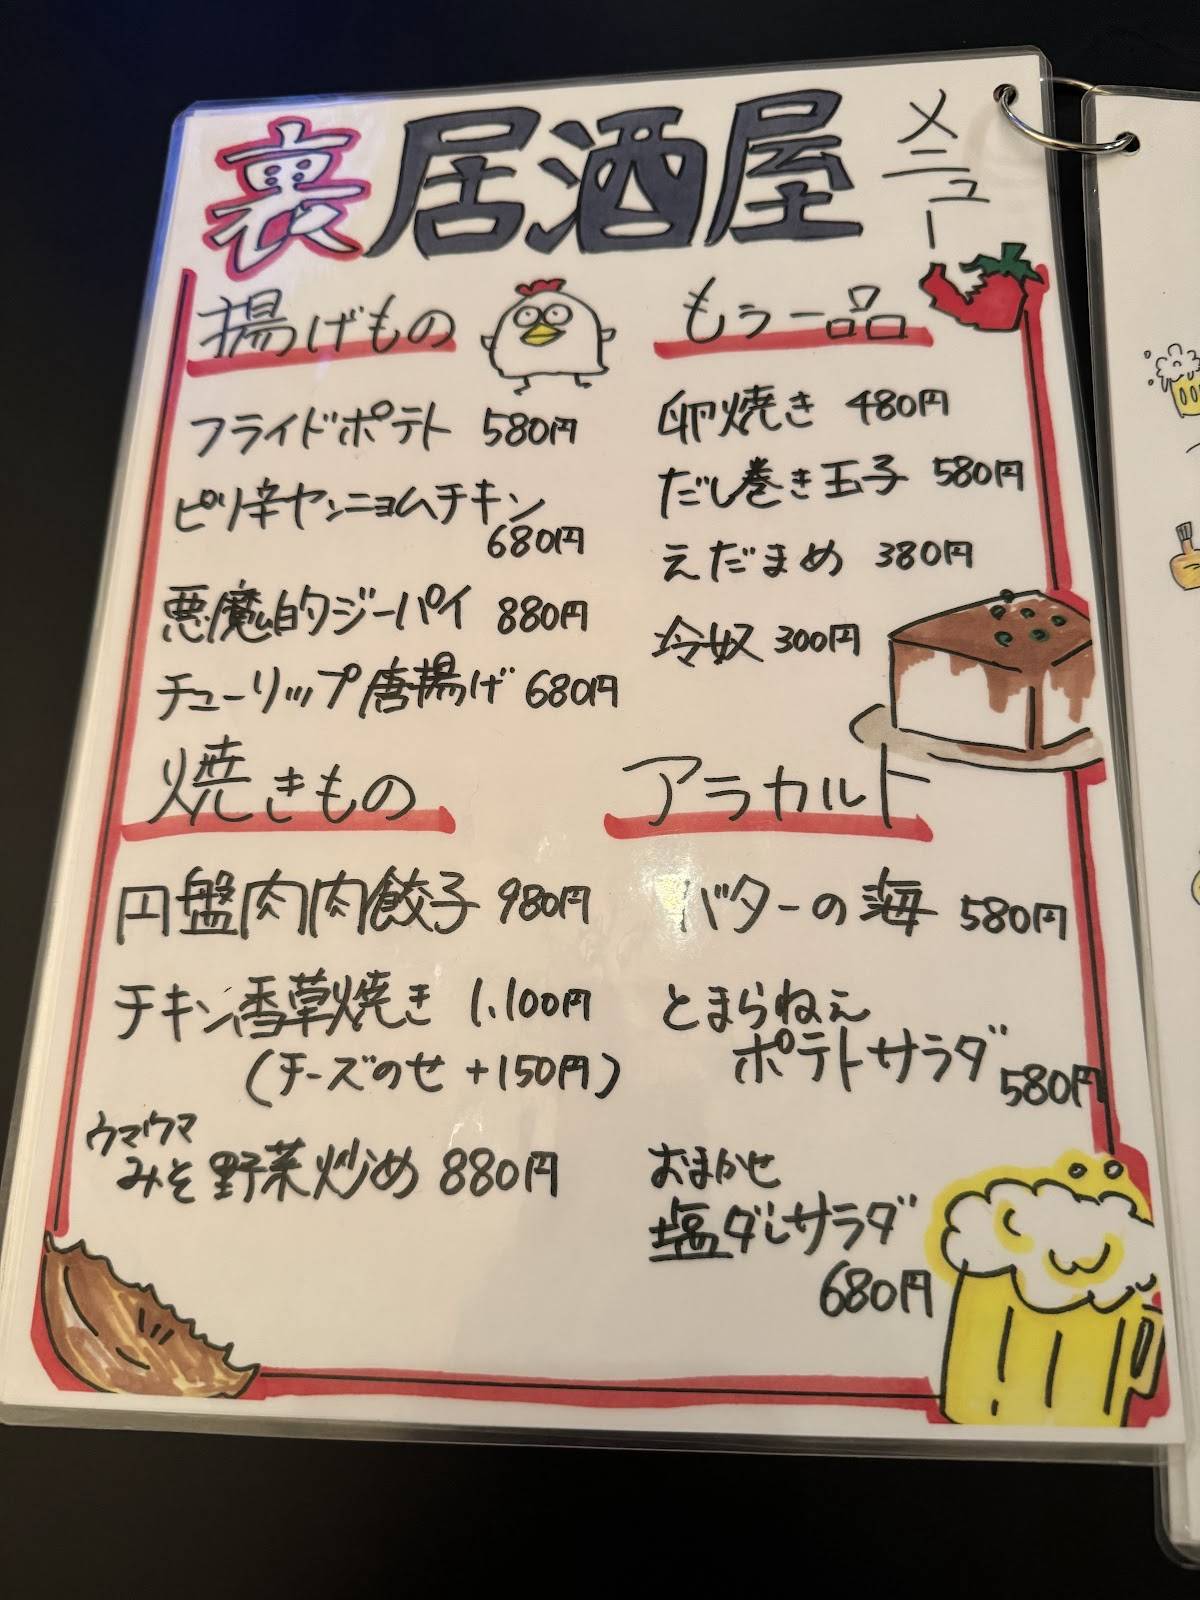 裏居酒屋メニュー
揚げもの
フライドポテト 580円
ピリ辛ヤンニョムチキン
680円
悪魔的ジーパイ 880円
チューリップ唐揚げ 680円
焼きもの
円盤肉肉餃子 980円
チキン香草焼き 1,100円
(チーズのせ +150円)
ウマウマ
みそ野菜炒め 880円
もぅ一品
卵焼き 480円
だし巻き玉子 580円
えだまめ 380円
冷奴 300円
アラカルト
バターの海 580円
とまらねぇ
ポテトサラダ
580円
おまかせ
塩ダレサラダ
680円